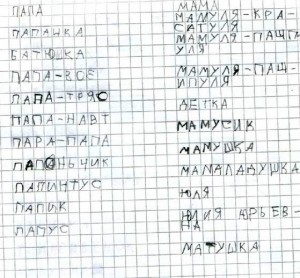 ПАПА
ПАПАНКА
БАТЮШКА
ПАПА-ВОЕ
ПАПА-ТРЯС
ПАПА-НАВТ
ПАРА-ПАПА
ПАПОНЬЧИК
ПАПИНТУС
ПАПИК
ПАПУС
МАМА
МАМУЛЯ-КРА-
САТУЛЯ
МАМУЛЯ-ПАЦП
УЛЯ
МАМУЛЯ-ПАЦ-
ИПУЛЯ
ДЕТКА
МАМУСИК
МАМУШКА
МАМАЛАДУШКА
ЮЛЯ
ЮЛИЯ ЮРЬЕВ-
НА
МАТУШКА